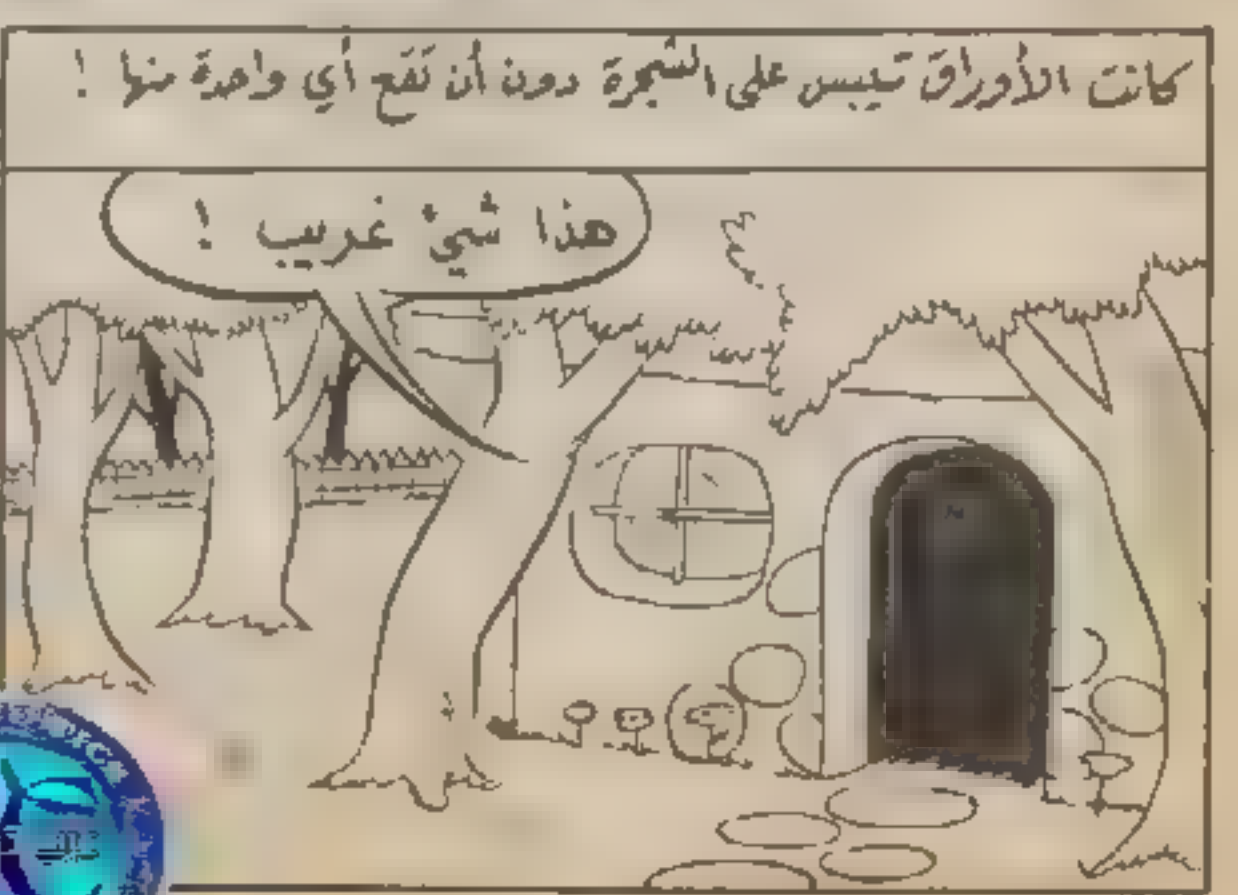 كانت الأوراق تيبس على الشجرة دون أن تَقَع أي واحدة منها !
هذا شيئ غريب !